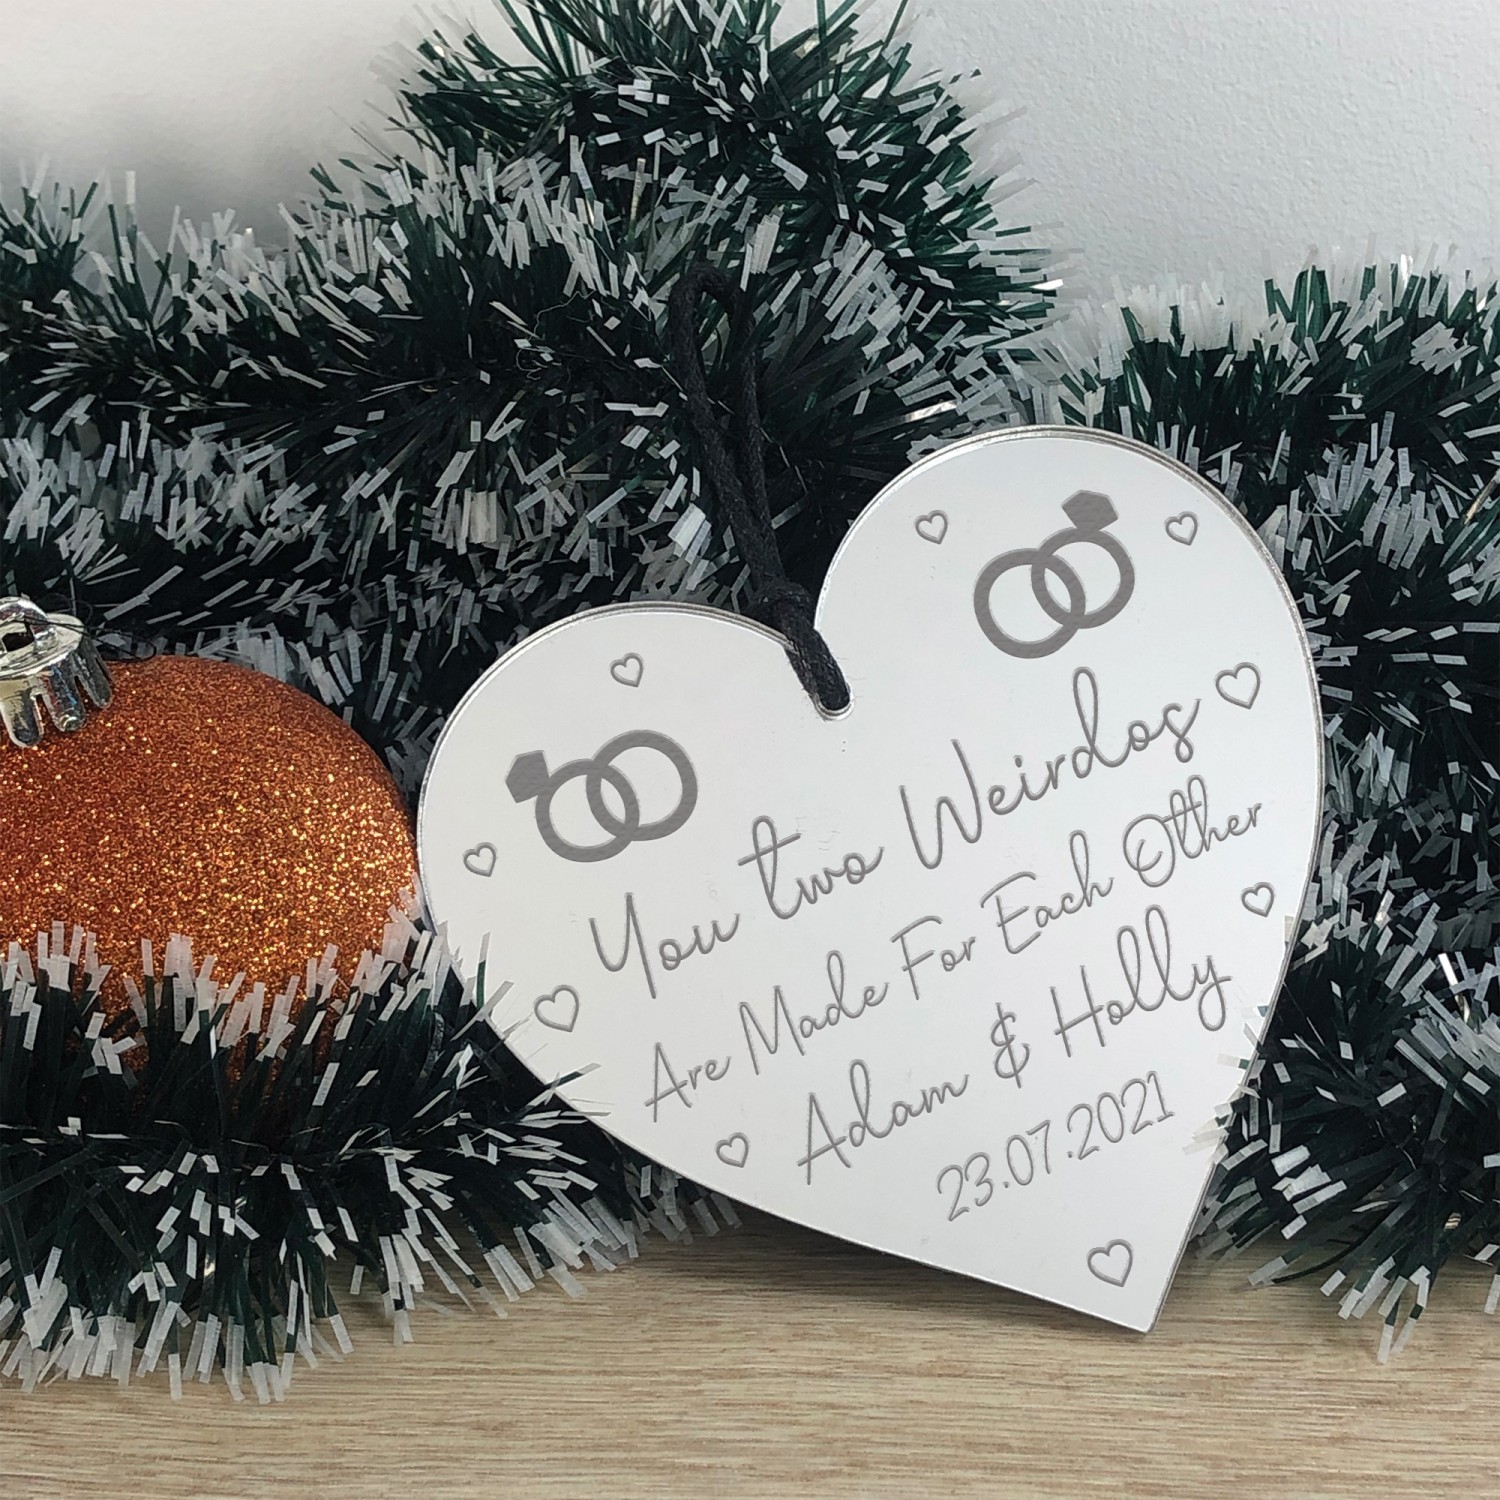 You two Weirdos
Are Made For Each Other
Adam & Holly
23.07.2021